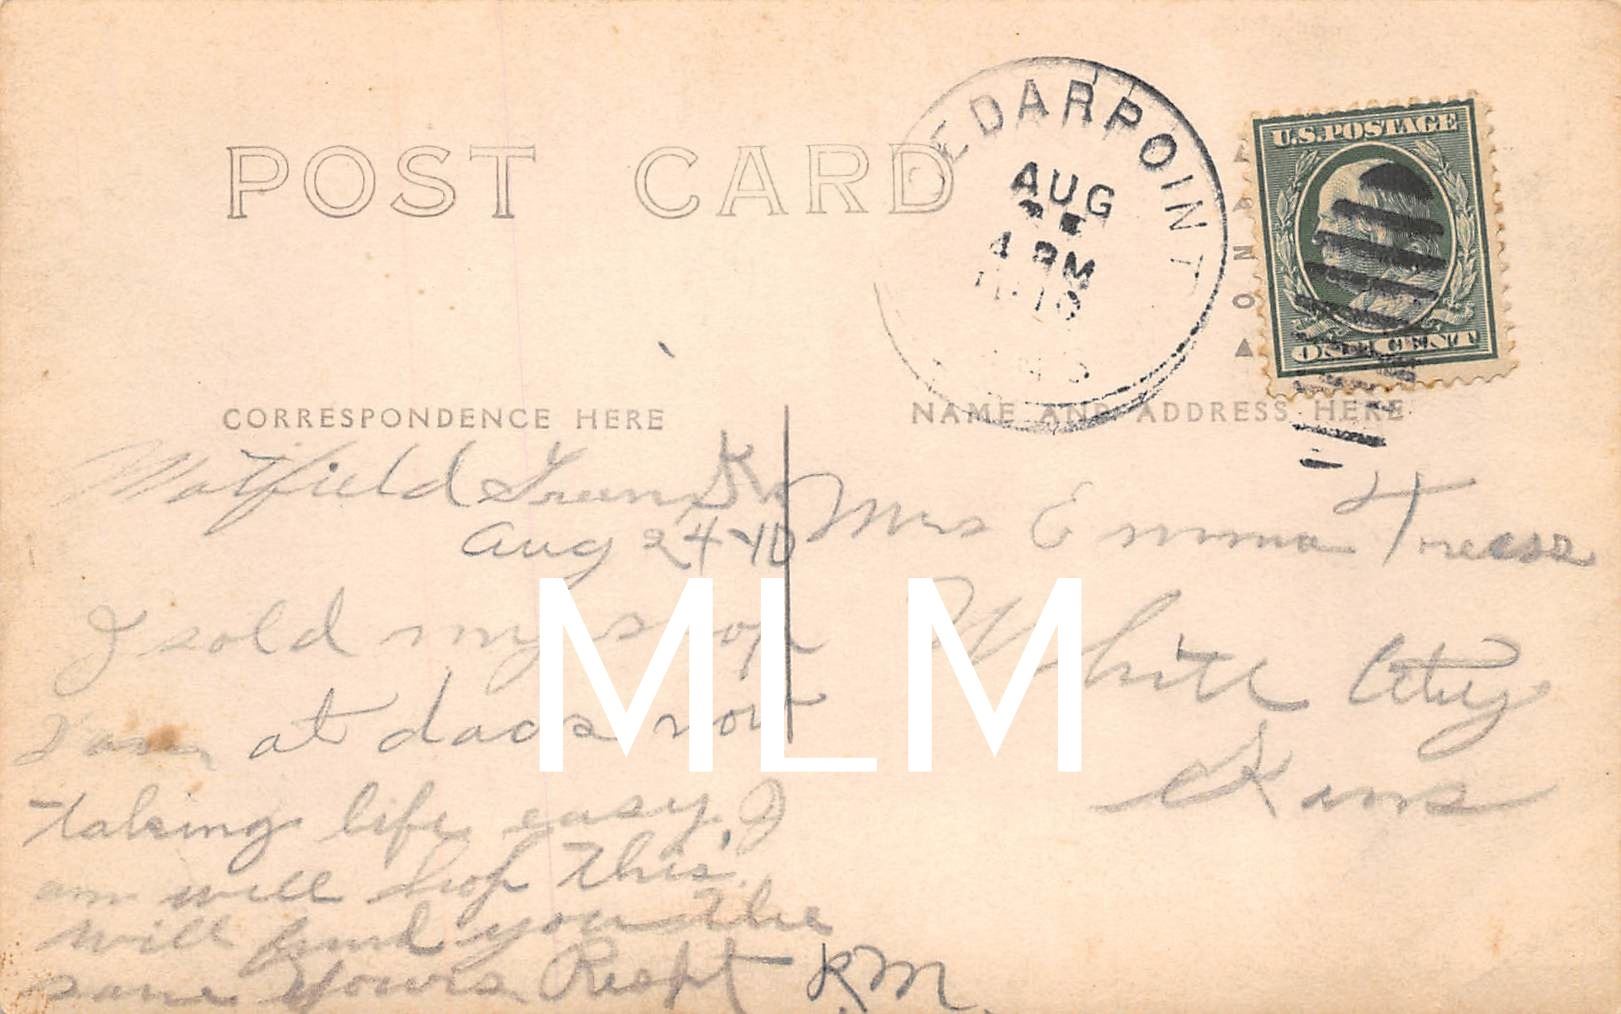 POST CARD
CEDARPOINT
AUG
4 PM
1910
KANS
U.S.POSTAGE
ONE CENT
CORRESPONDENCE HERE
NAME AND ADDRESS HERE
Matfield Green, K
Aug 24-10
I sold my shop
I am at dads now
taking life easy. I
am well hop this
will find you the
same Yours Respt R.M.
Mrs Emma
White City
Kans
MLM